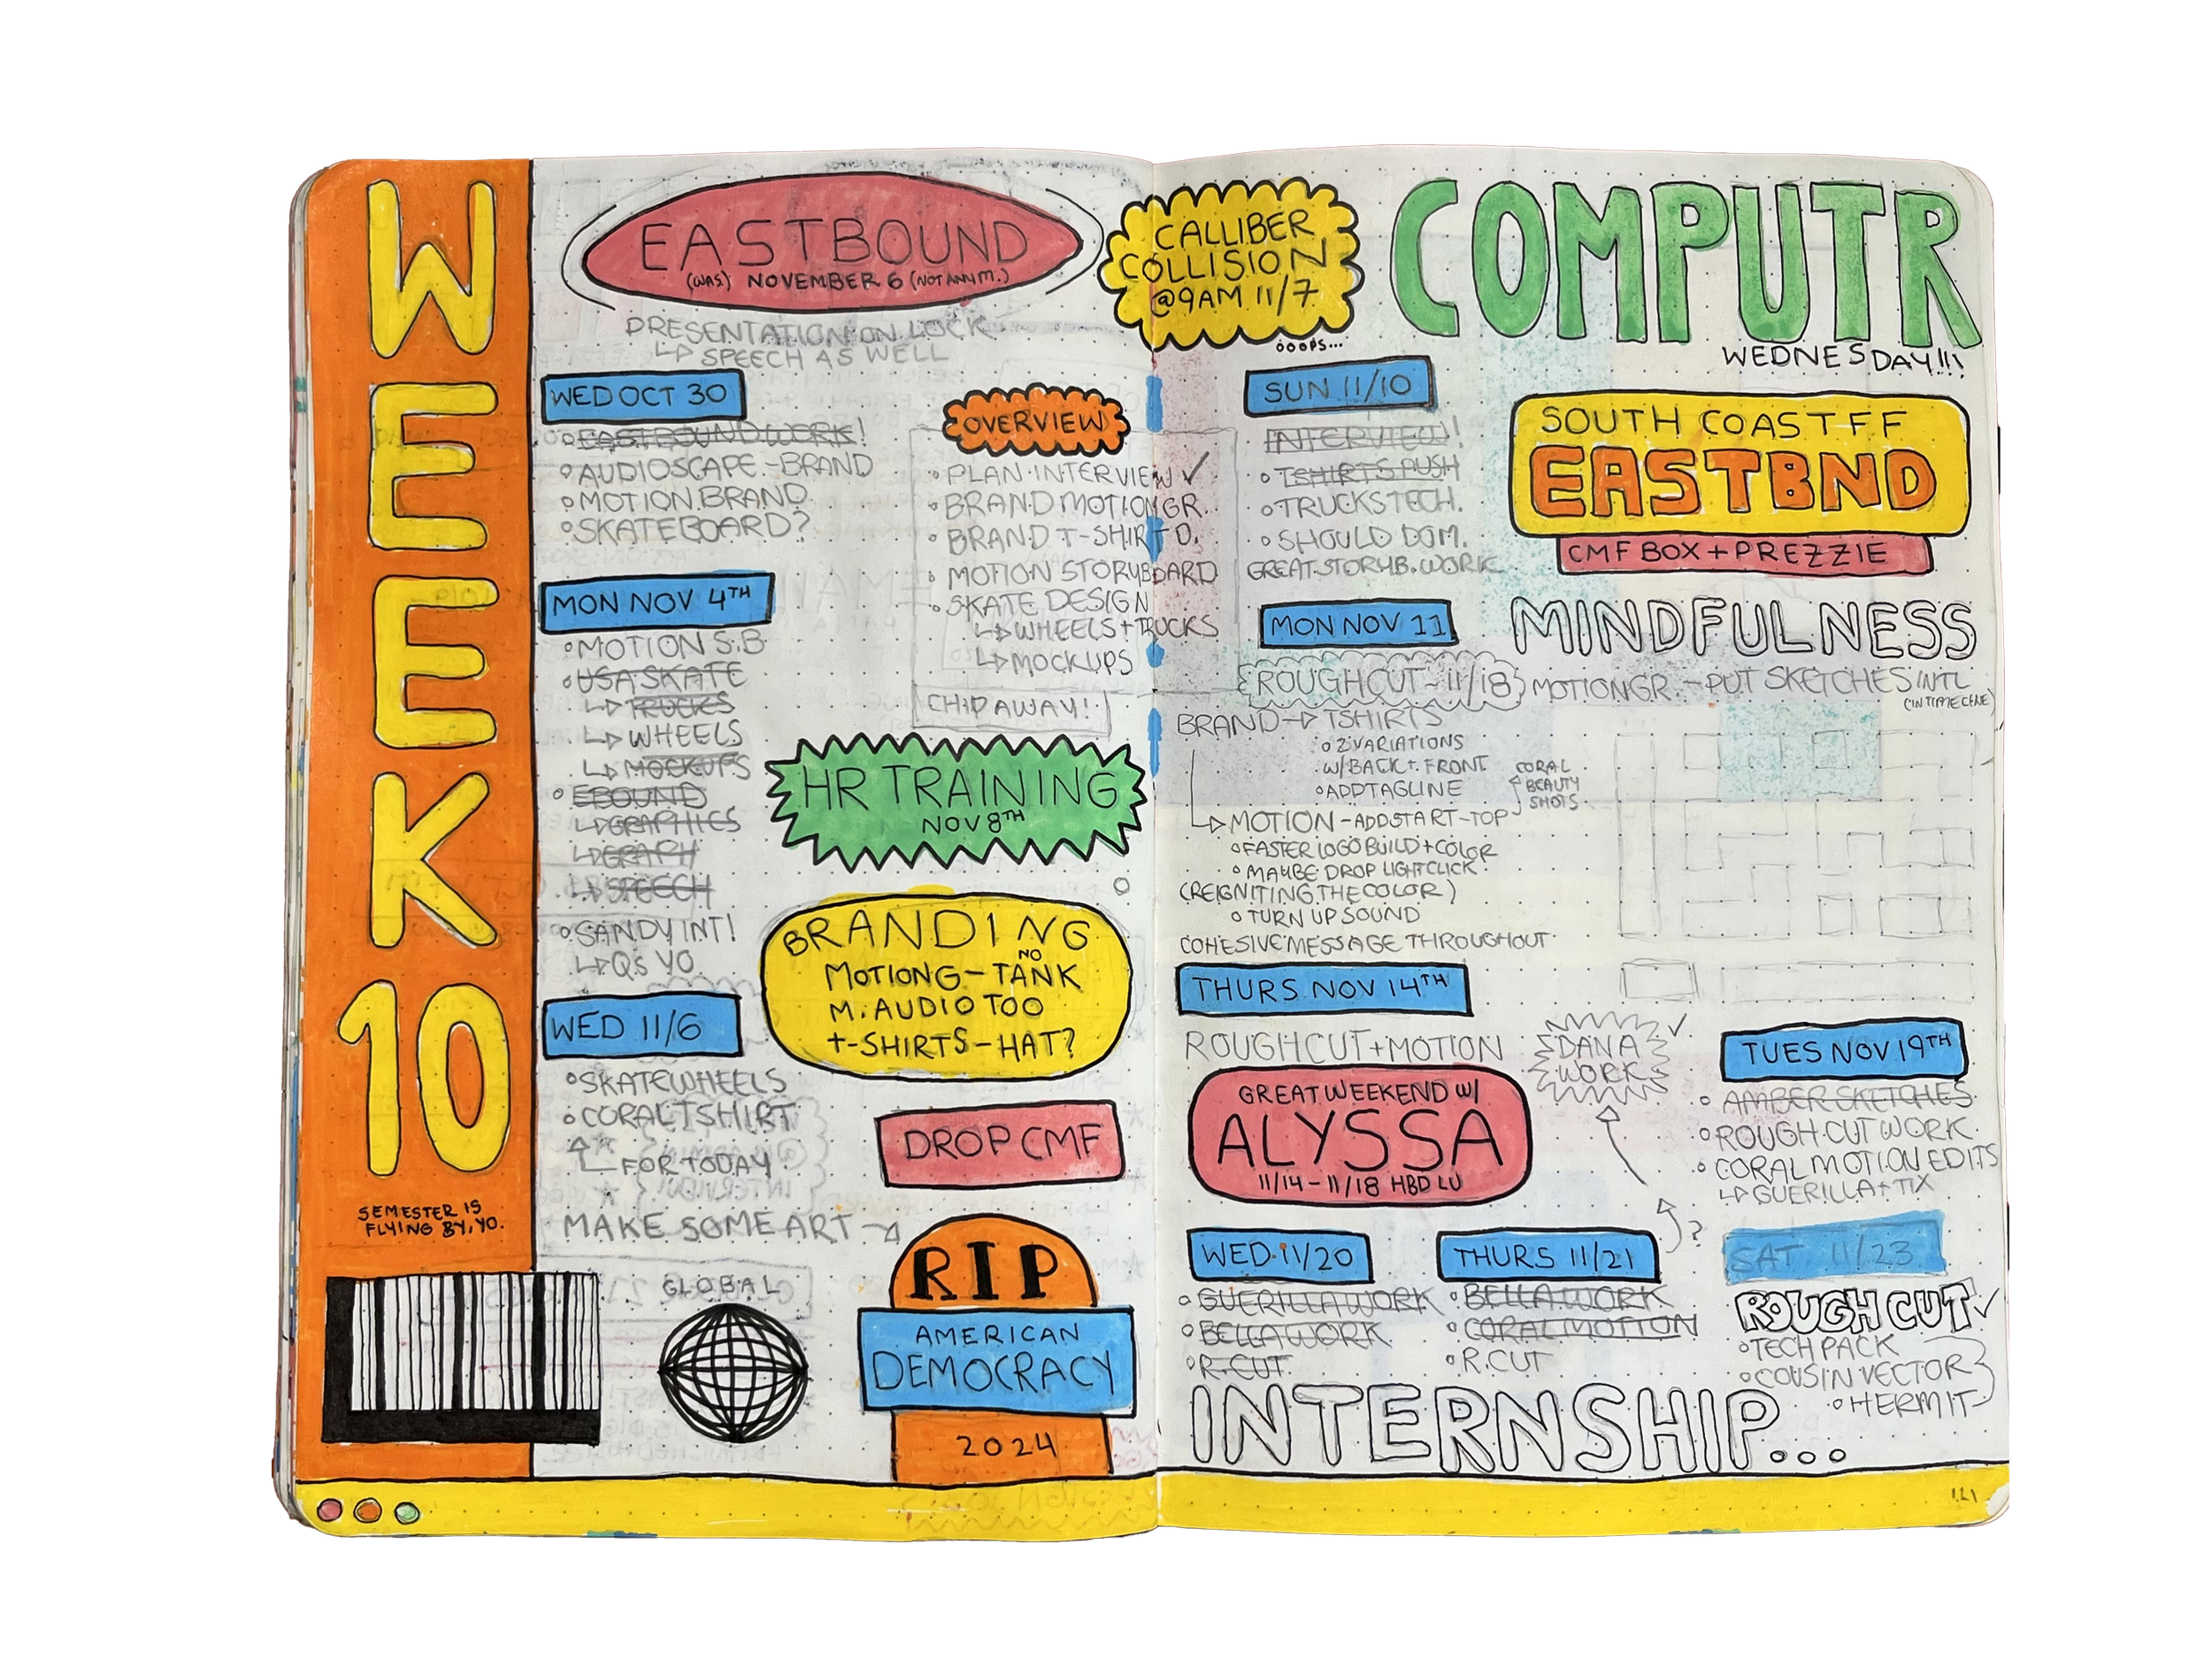 WEEK 10
SEMESTER IS
FLYING BY, YO.
EASTBOUND
(WAS) NOVEMBER 6 (NOT ANYM.)
PRESENTATION ON LOCK
SPEECH AS WELL
WED OCT 30
EASTBOUND WORK!
AUDIOSCAPE - BRAND
MOTION BRAND
SKATEBOARD?
MON NOV 4TH
MOTION S.B
USA SKATE
TRUCKS
WHEELS
MOCKUPS
EBOUND
GRAPHICS
GRAPH
SPEECH
SANDY INT!
Q'S YO
WED 11/6
SKATEWHEELS
CORAL TSHIRT
FOR TODAY
MAKE SOME ART
GLOBAL
OVERVIEW
PLAN INTERVIEW ✓
BRAND MOTION GR.
BRAND T-SHIRT D.
MOTION STORYBOARD
SKATE DESIGN
WHEELS + TRUCKS
MOCKUPS
CHIP AWAY!
HR TRAINING
NOV 8TH
BRANDING
MOTIONG - NO TANK
M. AUDIO TOO
T-SHIRTS - HAT?
DROP CMF
RIP
AMERICAN
DEMOCRACY
2024
CALLIBER
COLLISION
@9AM 11/7
OOOPS...
COMPUTR
WEDNESDAY!!!
SUN 11/10
INTERVIEW!
TSHIRTS PUSH
TRUCKS TECH.
SHOULD DOM.
GREAT STORYB. WORK
SOUTH COAST FF
EASTBND
CMF BOX + PREZZIE
MON NOV 11
MINDFULNESS
ROUGHCUT - 11/18
MOTION GR. - PUT SKETCHES INTL
(IN TIMELINE)
BRAND → TSHIRTS
2 VARIATIONS
W/BACK + FRONT
ADD TAGLINE
CORAL
BEAUTY
SHOTS
MOTION - ADD START - TOP
FASTER LOGO BUILD + COLOR
MAYBE DROP LIGHT CLICK
(REIGNITING THE COLOR)
TURN UP SOUND
COHESIVE MESSAGE THROUGHOUT
THURS NOV 14TH
ROUGHCUT + MOTION
DANA
WORK
✓
GREAT WEEKEND W/
ALYSSA
11/14 - 11/18 HBD LU
TUES NOV 19TH
AMBER SKETCHES
ROUGH CUT WORK
CORAL MOTION EDITS
GUERILLA + TIX
WED 11/20
GUERILLA WORK
BELLA WORK
R.CUT
THURS 11/21
?
BELLA WORK
CORAL MOTION
R.CUT
SAT 11/23
ROUGH CUT ✓
TECH PACK
COUSIN VECTOR
HERMIT
INTERNSHIP...